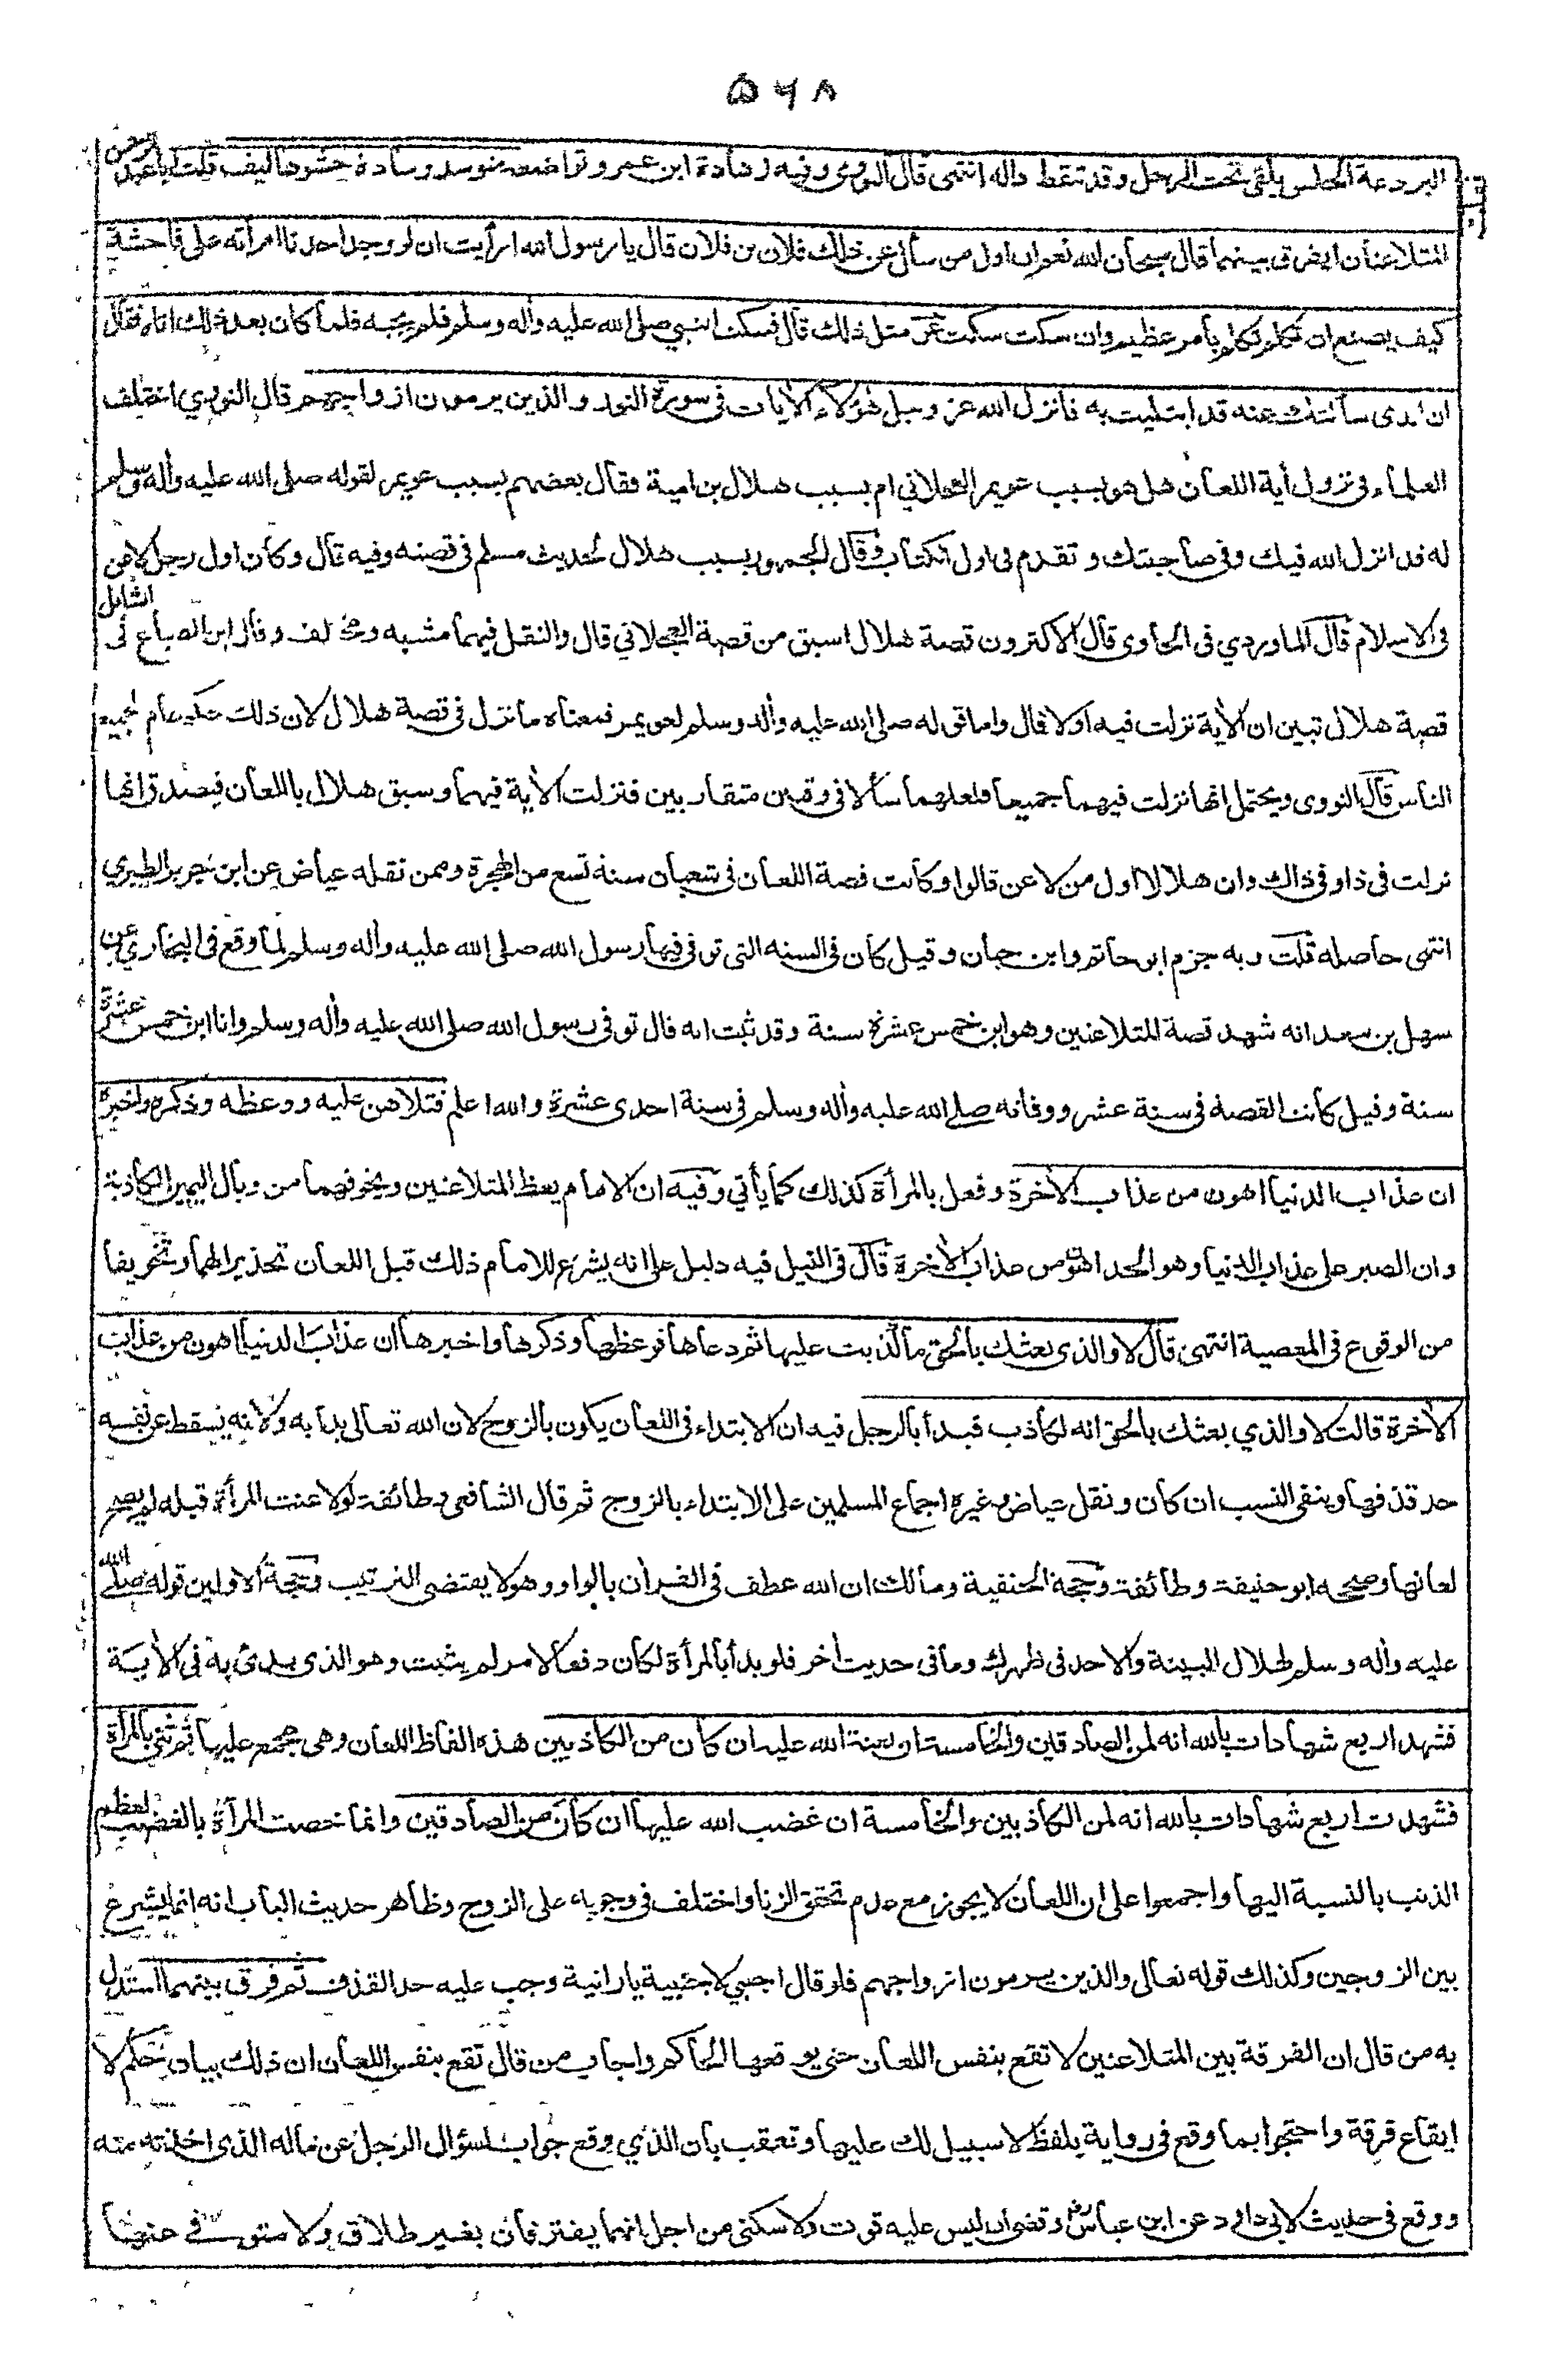 ٥٦٨
البردعة الحلس يلقى تحت الرحل وقد تنقط داله انتهى قال النووى وفيه زهادة ابن عمر وتواضعه متوسد وسادة حشوها ليف قلت ابا عبد الرحمن
المتلاعنان ايفرق بينهما قال سبحان الله نعم ان اول من سأل عن ذلك فلان بن فلان قال يا رسول الله ارأيت ان لو وجد احدنا امرأته على فاحشة
كيف يصنع ان تكلم تكلم بأمر عظيم وان سكت سكت عن مثل ذلك قال فسكت النبي صلى الله عليه وأله وسلم فلم يجبه فلما كان بعد ذلك اتاه فقال
ان الذى سألتك عنه قد ابتليت به فانزل الله عز وجل هؤلاء الأيات فى سورة النور والذين يرمون ازواجهم قال النووي اختلف
العلماء فى نزول أية اللعان هل هو بسبب عويمر العجلاني ام بسبب هلال بن امية فقال بعضهم بسبب عويمر لقوله صلى الله عليه وأله وسلم
له قد انزل الله فيك وفى صاحبتك وتقدم فى اول الكتاب وقال الجمهور بسبب هلال لحديث مسلم فى قصته وفيه قال وكان اول رجل لاعن
فى الاسلام قال الماوردي فى الحاوى قال الاكثرون قصة هلال اسبق من قصة العجلاني قال والنقل فيهما مشبه ومختلف وقال ابن الصباغ فى الشامل
قصة هلال تبين ان الأية نزلت فيه اولا قال واما قوله صلى الله عليه وأله وسلم لعويمر فمعناه ما نزل فى قصة هلال لان ذلك حكم عام لجميع
الناس قال النووى ويحتمل انها نزلت فيهما جميعا فلعلهما سألا فى وقتين متقاربين فنزلت الأية فيهما وسبق هلال باللعان فيصدق انها
نزلت فى ذا وفى ذاك وان هلالا اول من لاعن قالوا وكانت قصة اللعان فى شعبان سنة تسع من الهجرة وممن نقله عياض عن ابن جرير الطبري
انتهى حاصله قلت وبه جزم ابو حاتم وابن حبان وقيل كان فى السنة التى توفى فيها رسول الله صلى الله عليه وأله وسلم لما وقع فى البخاري عن
سهل بن سعد انه شهد قصة المتلاعنين وهو ابن خمس عشرة سنة وقد ثبت انه قال توفى رسول الله صلى الله عليه وأله وسلم وانا ابن خمس عشرة
سنة وقيل كانت القصة فى سنة عشر ووفاته صلى الله عليه وأله وسلم فى سنة احدى عشرة والله اعلم فتلاهن عليه ووعظه وذكره واخبره
ان عذاب الدنيا اهون من عذاب الأخرة وفعل بالمرأة كذلك كما يأتي وفيه ان الامام يعظ المتلاعنين ويخوفهما من وبال اليمين الكاذبة
وان الصبر على عذاب الدنيا وهو الحد اهون من عذاب الأخرة قال فى النيل فيه دليل على انه يشرع للامام ذلك قبل اللعان تحذيرا لهما وتخويفا
من الوقوع فى المعصية انتهى قال لا والذى بعثك بالحق ما كذبت عليها ثم دعاها فوعظها وذكرها واخبرها ان عذاب الدنيا اهون من عذاب
الأخرة قالت لا والذي بعثك بالحق انه لكاذب فبدأ بالرجل فيه ان الابتداء فى اللعان يكون بالزوج لان الله تعالى بدأ به ولانه يسقط عن نفسه
حد قذفها وينفى النسب ان كان ونقل عياض وغيره اجماع المسلمين على الابتداء بالزوج ثم قال الشافعى وطائفة لو لاعنت المرأة قبله لم يصح
لعانها وصححه ابو حنيفة وطائفة وحجة الحنفية ومالك ان الله عطف فى القرأن بالواو وهو لا يقتضى الترتيب وحجة الاولين قوله صلى الله
عليه وأله وسلم لهلال البينة والا حد فى ظهرك وما فى حديث أخر فلو بدأ بالمرأة لكان دفعا لامر لم يثبت وهو الذى بدئ به فى الأية
فشهد اربع شهادات بالله انه لمن الصادقين والخامسة ان لعنة الله عليه ان كان من الكاذبين هذه الفاظ اللعان وهى مجمع عليها ثم ثنى بالمرأة
فشهدت اربع شهادات بالله انه لمن الكاذبين والخامسة ان غضب الله عليها ان كان من الصادقين وانما خصت المرأة بالغضب لعظم
الذنب بالنسبة اليها واجمعوا على ان اللعان لا يجوز مع عدم تحقق الزنا واختلف فى وجوبه على الزوج وظاهر حديث الباب انه انما يشرع
بين الزوجين وكذلك قوله تعالى والذين يرمون ازواجهم فلو قال اجنبي لاجنبية يا زانية وجب عليه حد القذف ثم فرق بينهما استدل
به من قال ان الفرقة بين المتلاعنين لا تقع بنفس اللعان حتى يوقعها الحاكم واجاب من قال تقع بنفس اللعان ان ذلك بيان حكم لا
ايقاع فرقة واحتجوا بما وقع فى رواية بلفظ لا سبيل لك عليها وتعقب بان الذي وقع جواب لسؤال الرجل عن ماله الذى اخذته منه
ووقع فى حديث لابى داود عن ابن عباس وقضى ان ليس عليه قوت ولا سكنى من اجل انهما يفترقان بغير طلاق ولا متوفى عنها